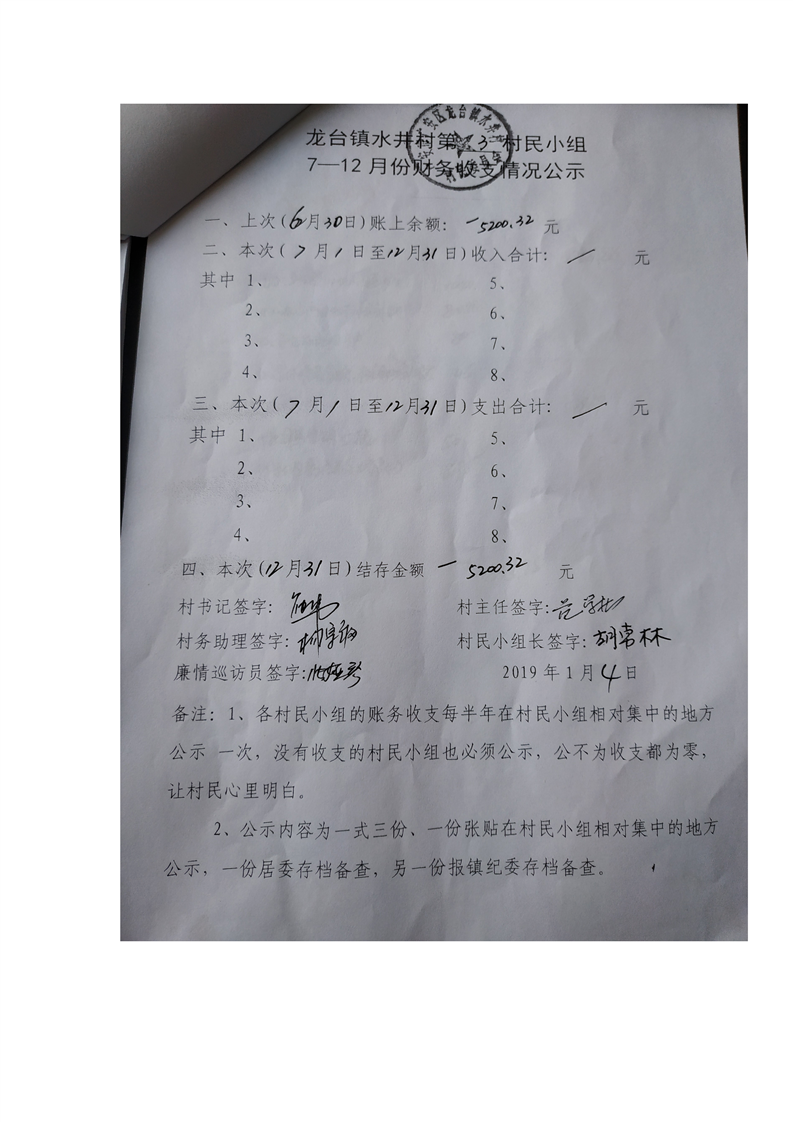 龙台镇水井村第 3 村民小组
7—12 月份财务收支情况公示
一、上次(6月30日)账上余额: -5200.32 元
二、本次( 7 月 1 日至12月31日)收入合计: / 元
其中 1、 5、
2、 6、
3、 7、
4、 8、
三、本次( 7 月 1 日至12月31日)支出合计: / 元
其中 1、 5、
2、 6、
3、 7、
4、 8、
四、本次(12月31日)结存金额 -5200.32 元
村书记签字: 村主任签字:
村务助理签字: 村民小组长签字: 胡常林
廉情巡访员签字: 2019 年 1 月 4 日
备注: 1、各村民小组的账务收支每半年在村民小组相对集中的地方
公示 一次，没有收支的村民小组也必须公示，公不为收支都为零，
让村民心里明白。
2、公示内容为一式三份、一份张贴在村民小组相对集中的地方
公示，一份居委存档备查，另一份报镇纪委存档备查。